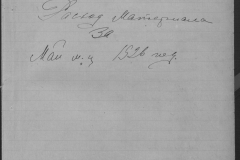 Расход Материала
За
Май м-ц 1926 год.